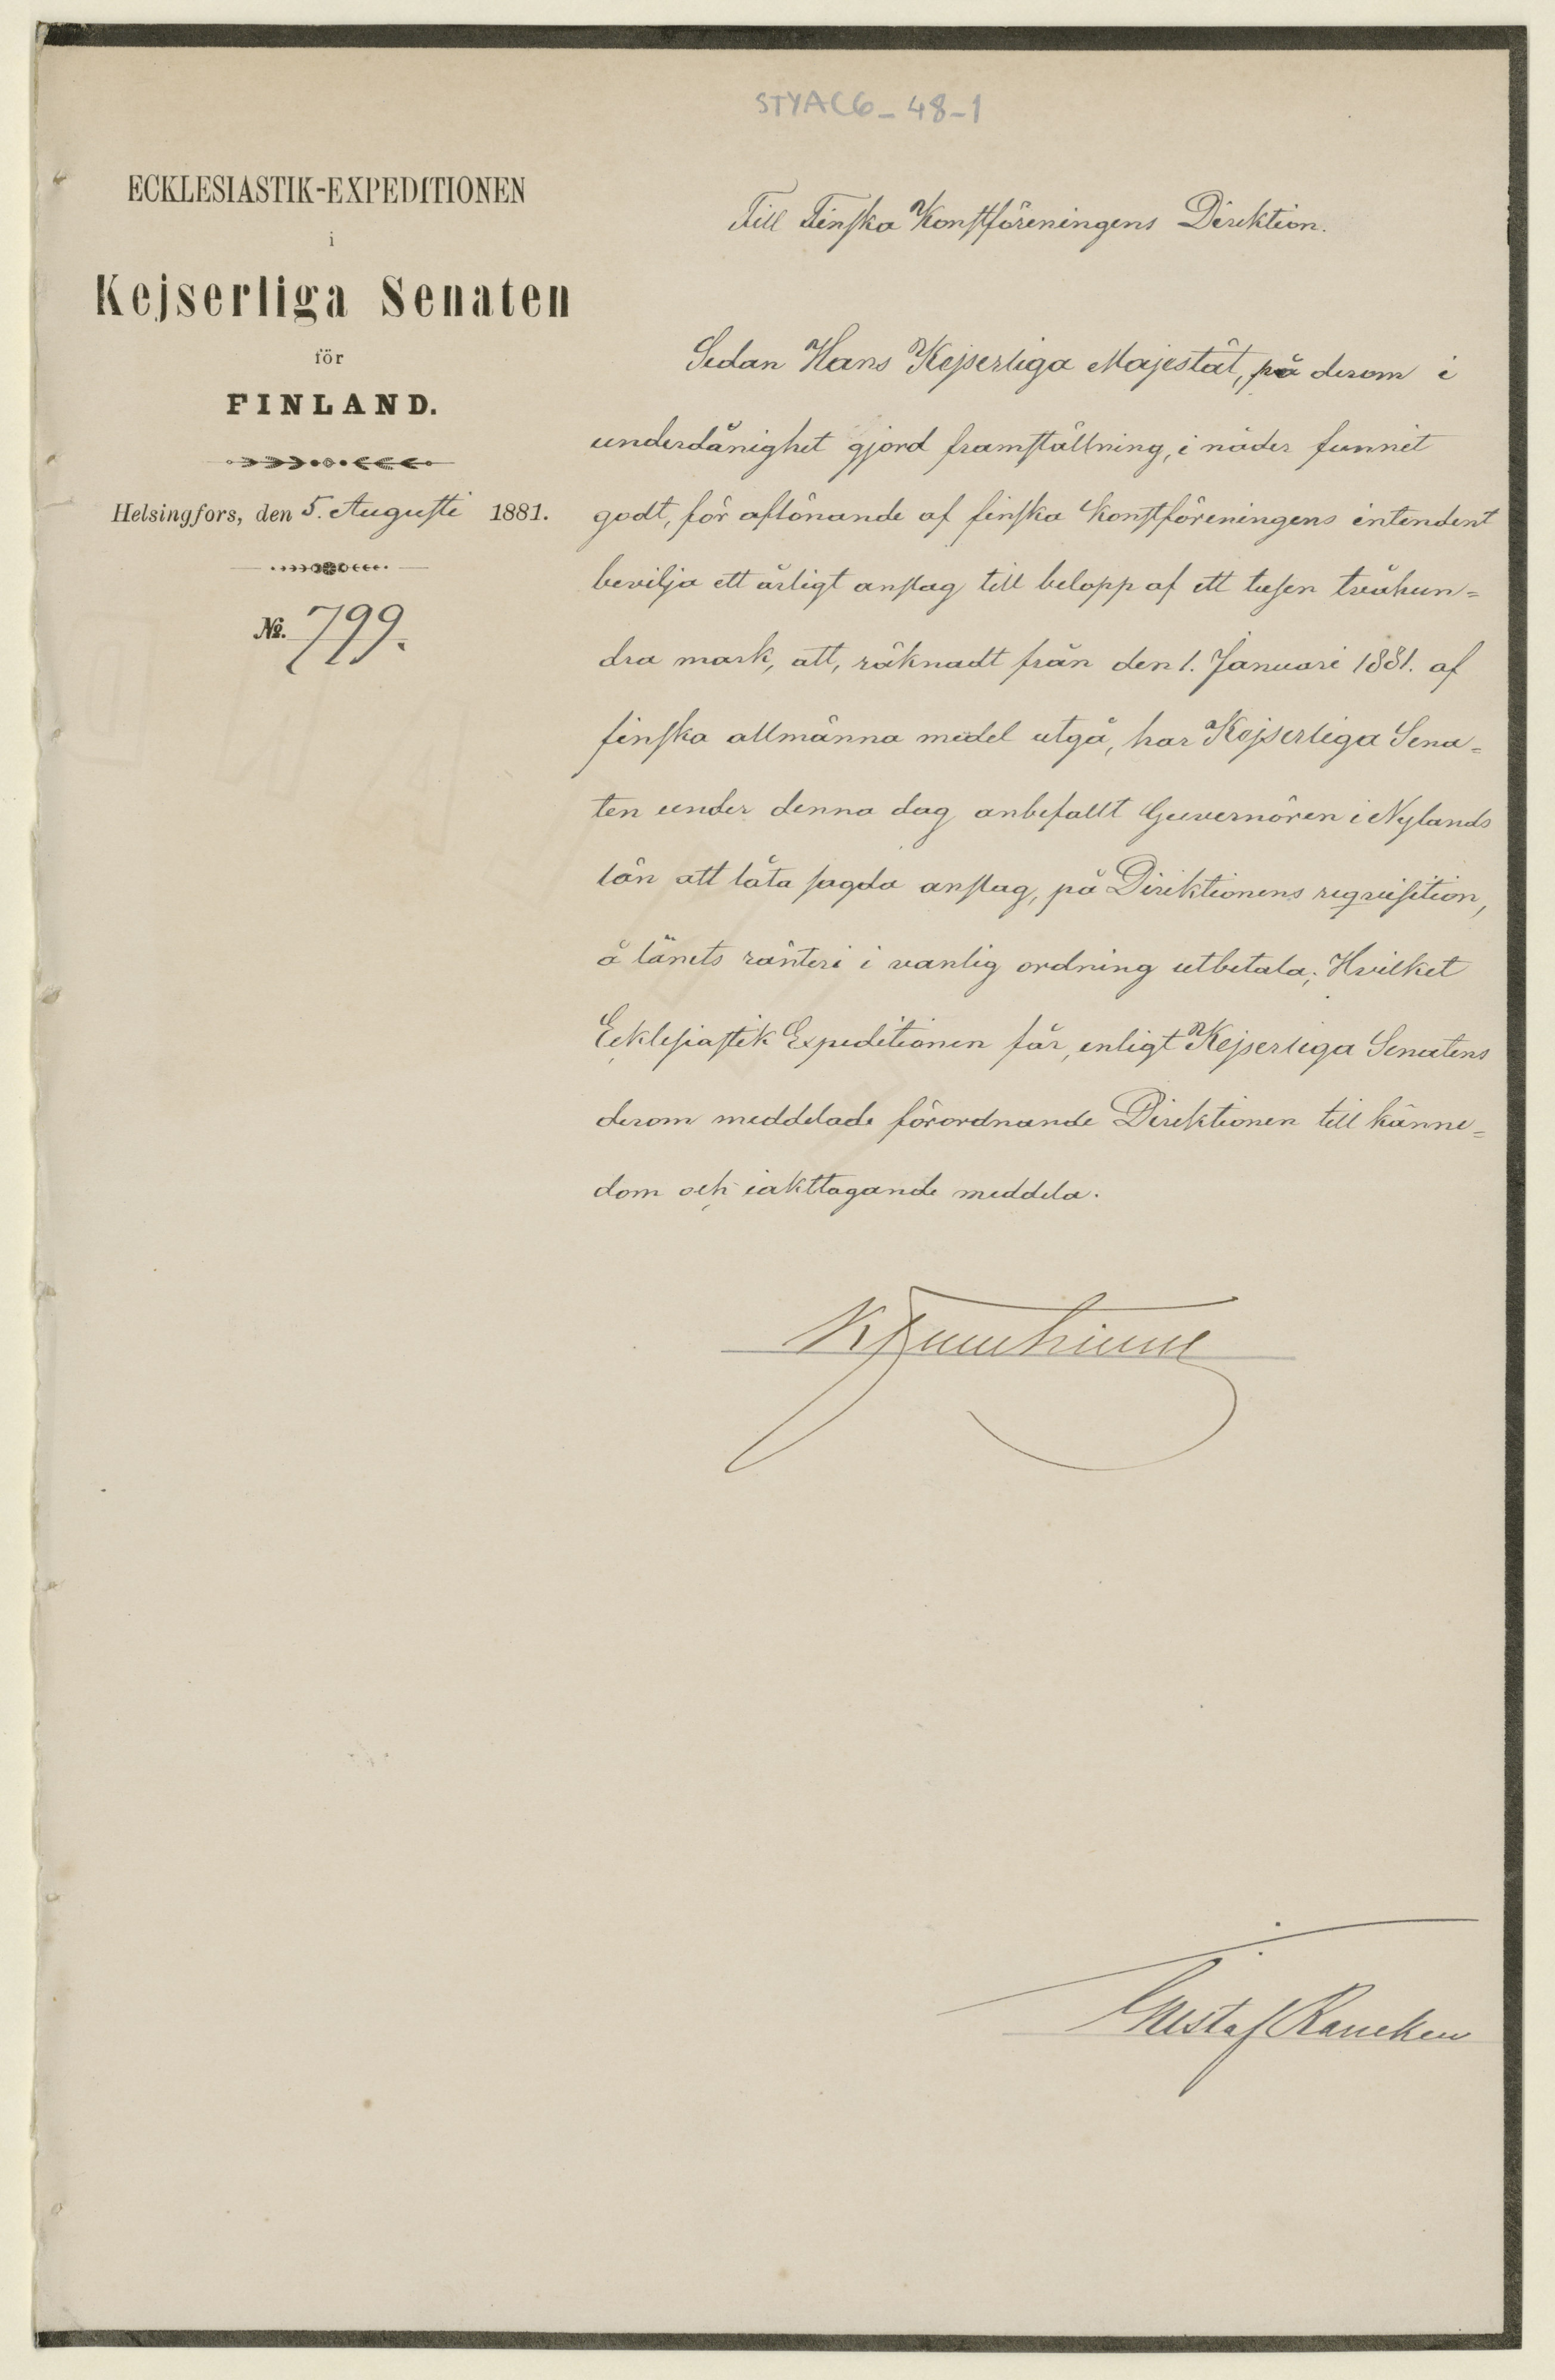 STYAC6_48-1
ECKLESIASTIK-EXPEDITIONEN
i
Kejserliga Senaten
för
FINLAND.
Helsingfors, den 5. Augusti 1881.
No. 799.
Till Finska Konstföreningens Direktion.
Sedan Hans Kejserliga Majestät, på derom i
underdånighet gjord framställning, i nåder funnit
godt, för aflönande af finska konstföreningens intendent
bevilja ett årligt anslag till belopp af ett tusen tvåhun=
dra mark, att, räknadt från den 1. Januari 1881. af
finska allmänna medel utgå, har Kejserliga Sena=
ten under denna dag anbefallt Guvernören i Nylands
län att låta sagda anslag, på Direktionens requisition,
å länets ränteri i vanlig ordning utbetala; Hvilket
Ecklesiastik Expeditionen får, enligt Kejserliga Senatens
derom meddelade förordnande Direktionen till känne=
dom och iakttagande meddela.
Gustaf Rancken